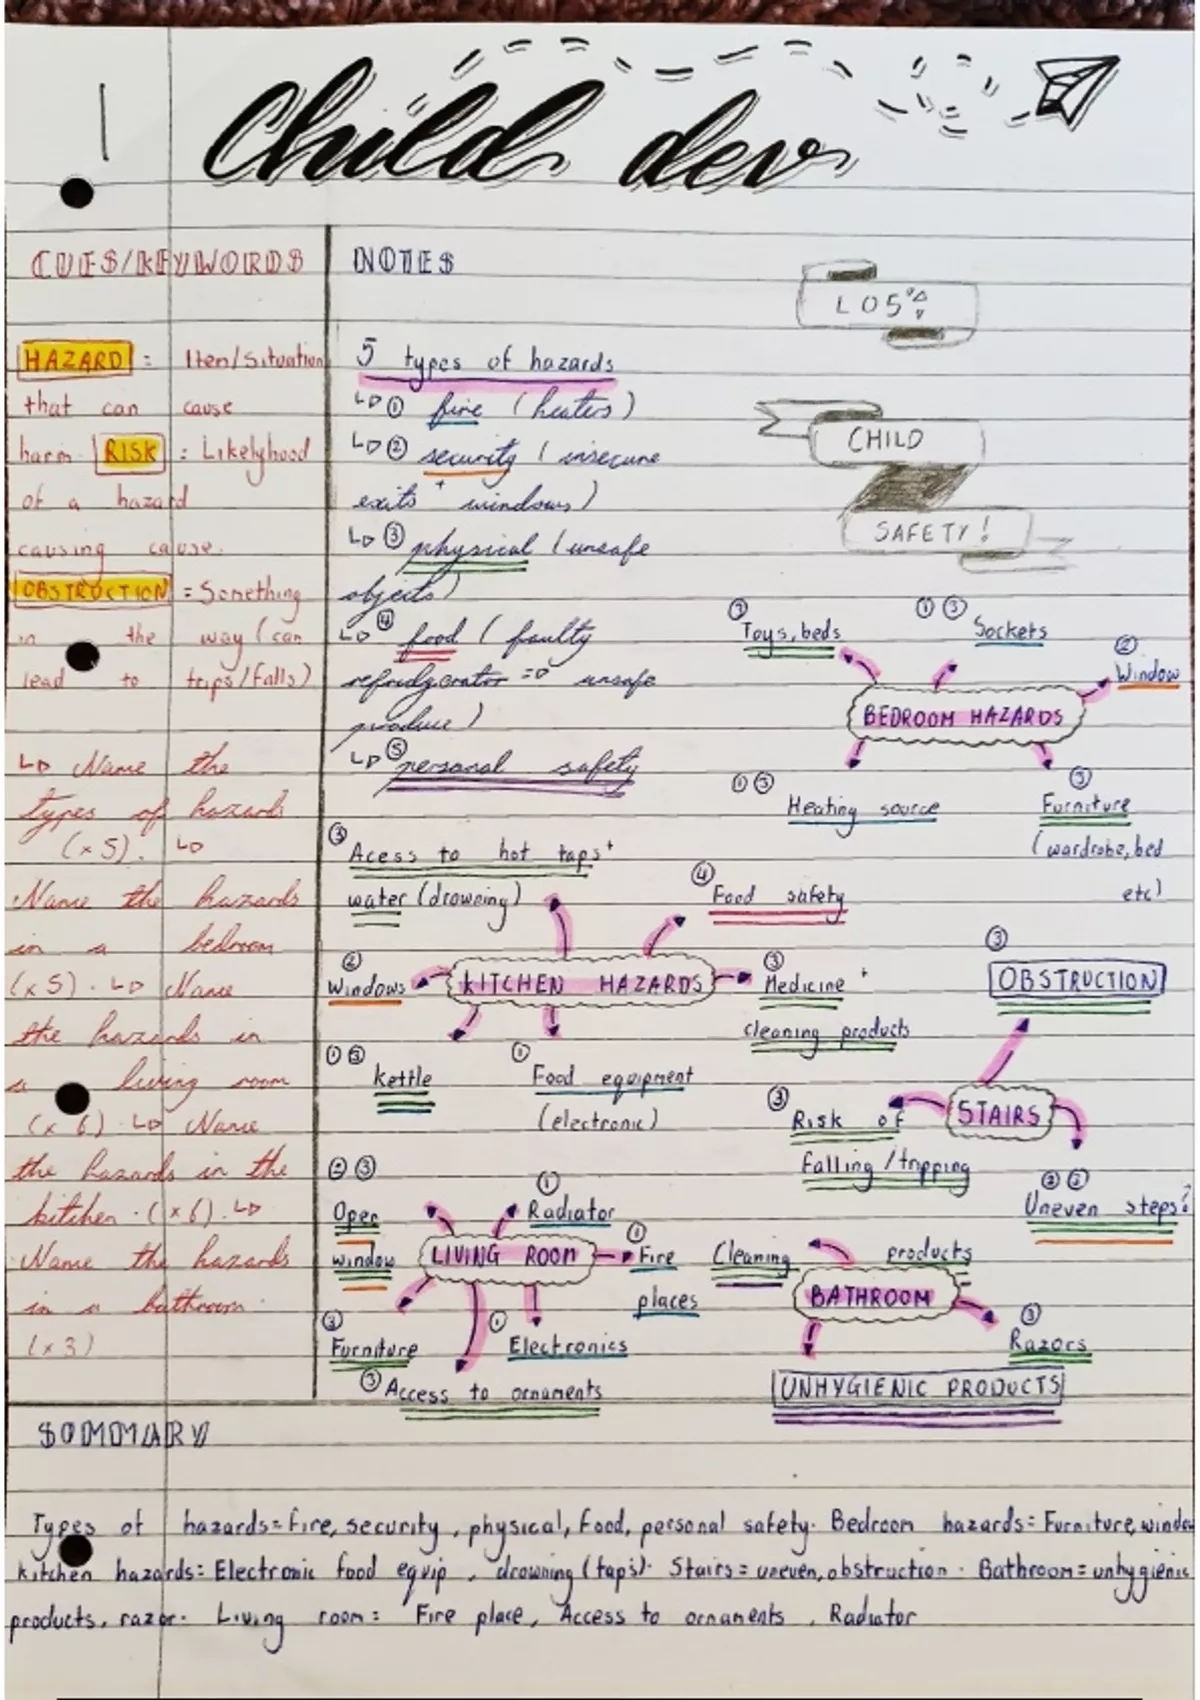 Child dev
CUES/KEYWORDS
HAZARD = Item/Situation
that can cause
harm. RISK = Likelyhood
of a hazard
causing cause.
OBSTRUCTION = Something
in the way (can
lead to trips/falls)
↳ Name the
types of hazards
(x5). ↳
Name the hazards
in a bedroom
(x5). ↳ Name
the hazards in
a living room
(x6). ↳ Name
the hazards in the
kitchen. (x6). ↳
Name the hazards
in a bathroom.
(x3)
NOTES
5 types of hazards
↳ ① fire (heaters)
↳ ② security (insecure
exits + windows)
↳ ③ physical (unsafe
objects)
↳ ④ food (faulty
refridgerator => unsafe
produce)
↳ ⑤ personal safety
LO5
CHILD
SAFETY!
③ Toys, beds
① ③ Sockets
② Window
BEDROOM HAZARDS
① ③ Heating source
③ Furniture
(wardrobe, bed
etc)
③ Acess to hot taps +
water (drowning)
④ Food safety
② Windows
KITCHEN HAZARDS
③ Medicine +
cleaning products
① ③ kettle
① Food equipment
(electronic)
③ OBSTRUCTION
STAIRS
③ Risk of
falling/tripping
③ ② Uneven steps?
② ③
Open
window
① Radiator
LIVING ROOM
① Fire
places
③ Furniture
① Electronics
③ Access to ornaments
Cleaning products
BATHROOM
③ Razors
UNHYGIENIC PRODUCTS
SUMMARY
Types of hazards = Fire, security, physical, food, personal safety. Bedroom hazards = Furniture, window
kitchen hazards = Electronic food equip, drowning (taps). Stairs = uneven, obstruction. Bathroom = unhygienic
products, razor. Living room = Fire place, Access to ornaments, Radiator